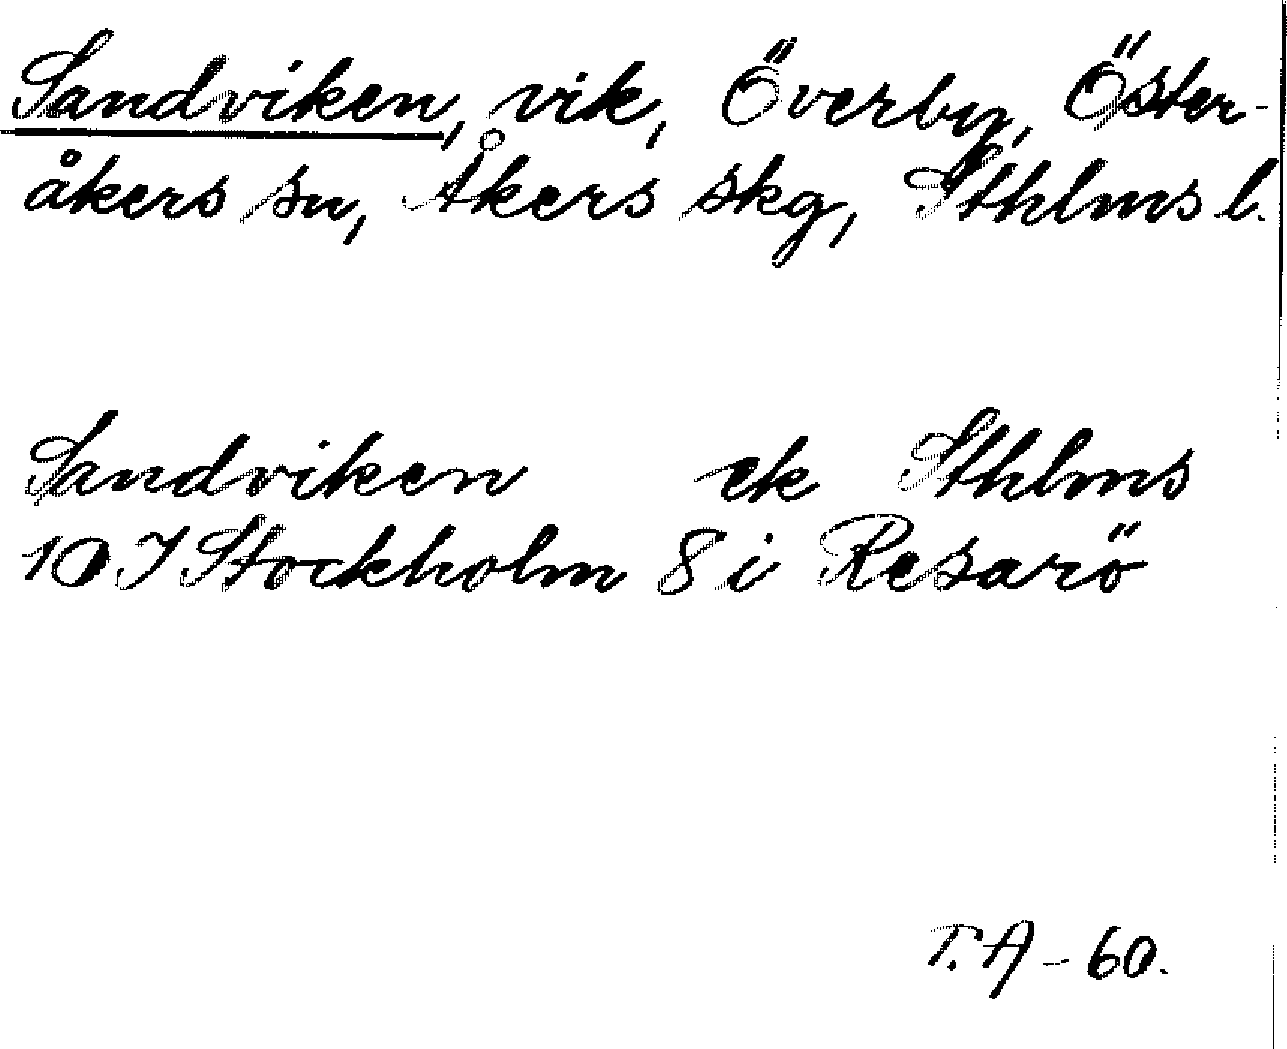 Sandviken, vik, Överby, Öster-
åkers sn, Åkers skg, Sthlms l.
Sandviken ek Sthlms
10 I Stockholm 8 i Resarö
T. A - 60.